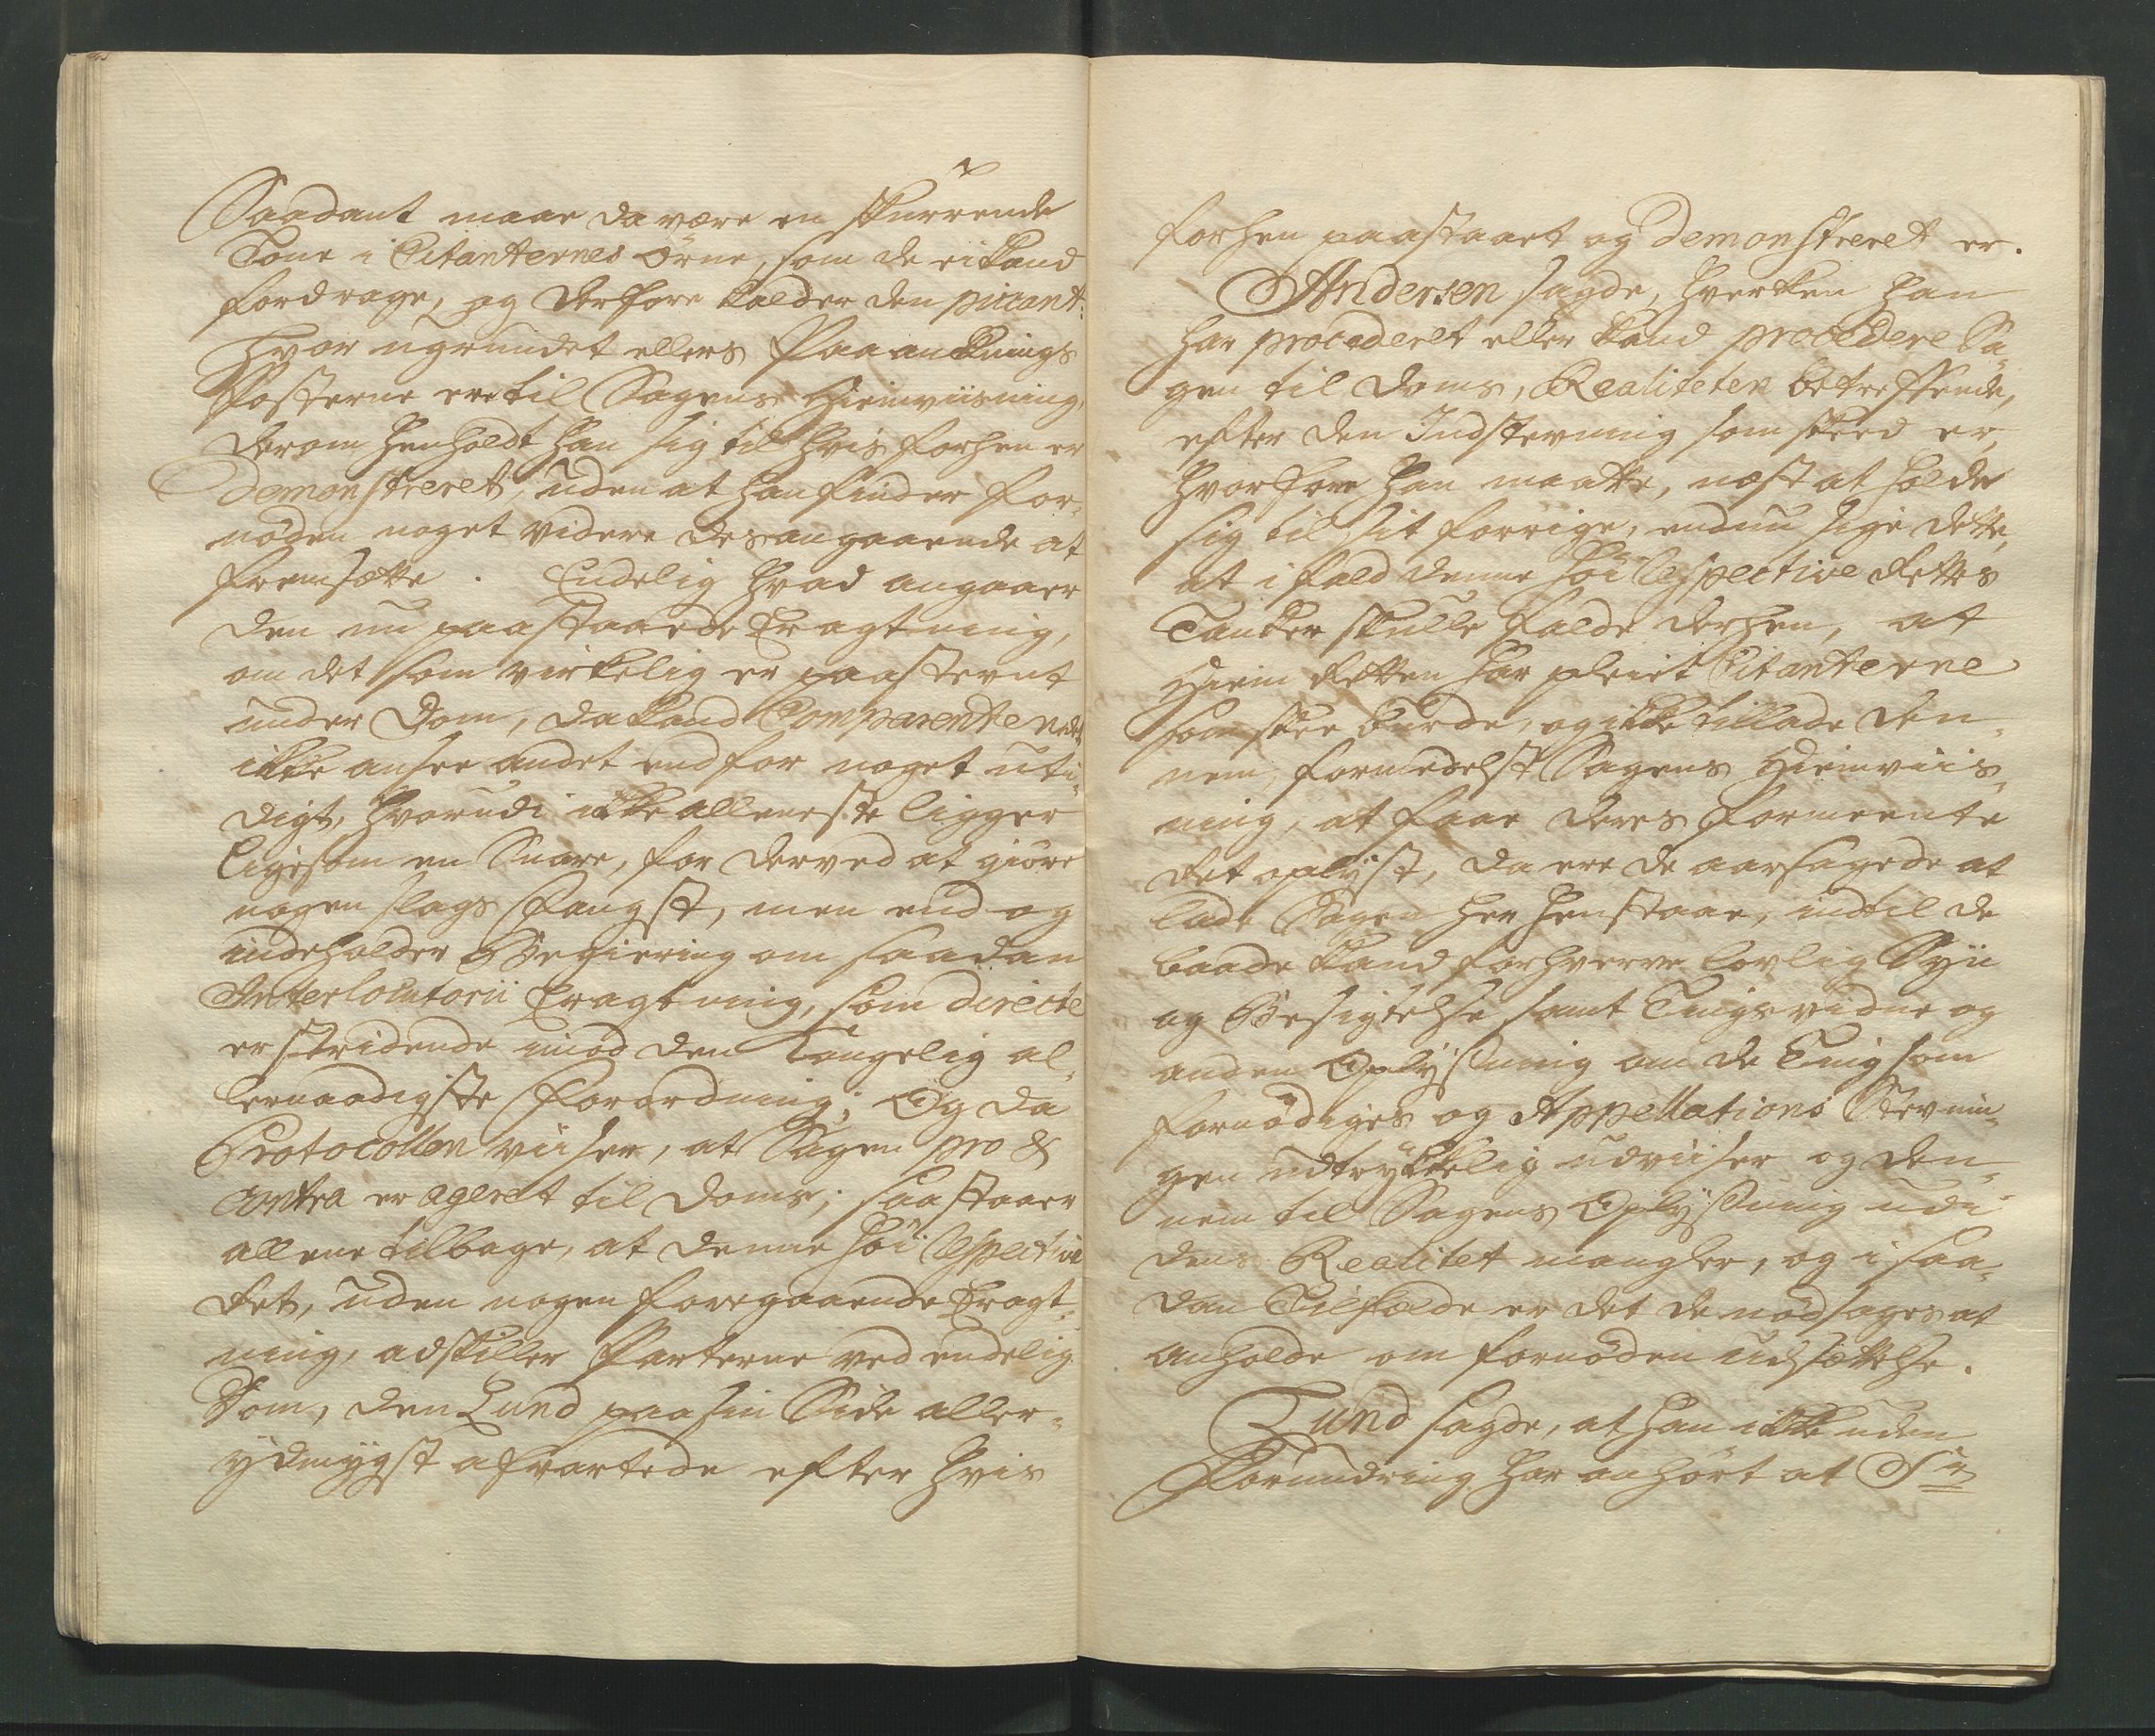 Saadant maae da være en skurrende
Tone i Citanternes Örne, som de ei kand
fordrage, og derfore kalder den piccant.
Hvor ugrundet ellers Paaanknings
Posterne ere til Sagens Hiemviisning,
derom henholdt han sig til hvis forhen er
demonstreret, uden at han finder for-
nöden noget videre desangaaende at
fremsætte. Endelig hvad angaaer
den nu paastaaede Eragtning,
om det som virkelig er paastevnt
under Dom, da kand Comparenten det
ikke ansee andet end for noget uti-
digt, hvorudi ikke alleneste ligger
ligesom en Snare, for derved at giöre
nogen slags Fangst, men end og
indeholder Begiering om saadan
Interlocutorii Eragtning, som directe
er stridende imod den Kongelig al-
lernaadigste Forordning; Og da
Protocollen viiser, at Sagen pro &
contra er ageret til Doms; saa staaer
allene tilbage, at denne höi respective
Ret, uden nogen foregaaende Eragt-
ning, adskiller Parterne ved endelig
Dom, den Lund paa sin Side aller-
ydmygst afvartede efter hvis
forhen paastaaet og demonstreret er.
Andersen sagde, hverken han
har procederet eller kand procedere Sa-
gen til Doms, Realiteten betreffende,
efter den Indstevning som skeed er,
hvorfore han maatte, næst at holde
sig til sit forrige, endnu sige dette,
at ifald denne höi respective Rettes
Tanker skulle falde derhen, at
Hiem Retten har pleiet Citanterne
som skee burde, og ikke tillade den-
nem, formedelst Sagens Hiemviis-
ning, at faae deres formeente
Ret oplyst, da ere de aarsagede at
lade Sagen her henstaae, indtil de
baade kand forhverve lovlig Syn
og Besigtelse samt Tingsvidne og
anden Oplysning om de Ting som
fornödiges og Appellations Stevnin-
gen udtrykkelig udviiser og den-
nem til Sagens Oplysning udi
dens Realitet mangler, og i saa-
dan Tilfælde er det de nödsages at
anholde om fornöden Udsættelse.
Lund sagde, at han ikke uden
Forundring har anhört at Sr